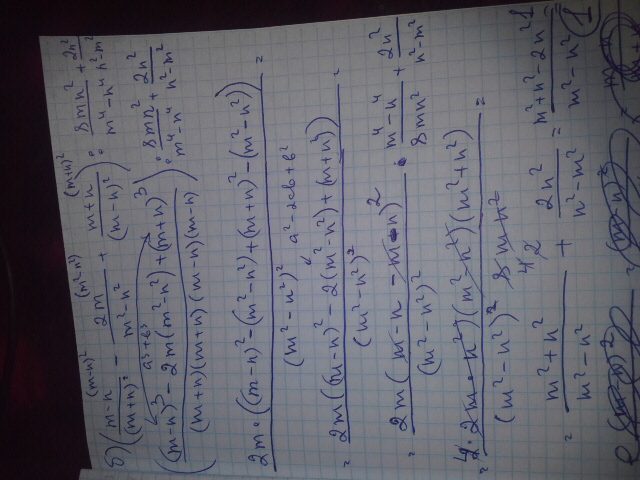 б) ((m-n)/(m+n)² - 2m/(m²-n²) + (m+n)/(m-n)²) : 8mn²/(m⁴-n⁴) + 2n²/(n²-m²)
(m-n)² (m²-n²) (m+n)²
a³+b³
((m-n)³ - 2m(m²-n²) + (m+n)³)/((m+n)(m+n)(m-n)(m-n)) : 8mn²/(m⁴-n⁴) + 2n²/(n²-m²)
2m·((m-n)²-(m²-n²)+(m+n)²-(m²-n²))/(m²-n²)² =
a²-2ab+b²
= 2m((m-n)²-2(m²-n²)+(m+n)²)/(m²-n²)² =
= 2m(m-n-m-n)²/(m²-n²)² · (m⁴-n⁴)/8mn² + 2n²/(n²-m²)
(m²-n²)(m²+n²)
(m²-n²)² 8mn² =
= (m²+n²)/(m²-n²) + 2n²/(n²-m²) = (m²+n²-2n²)/(m²-n²) = 1